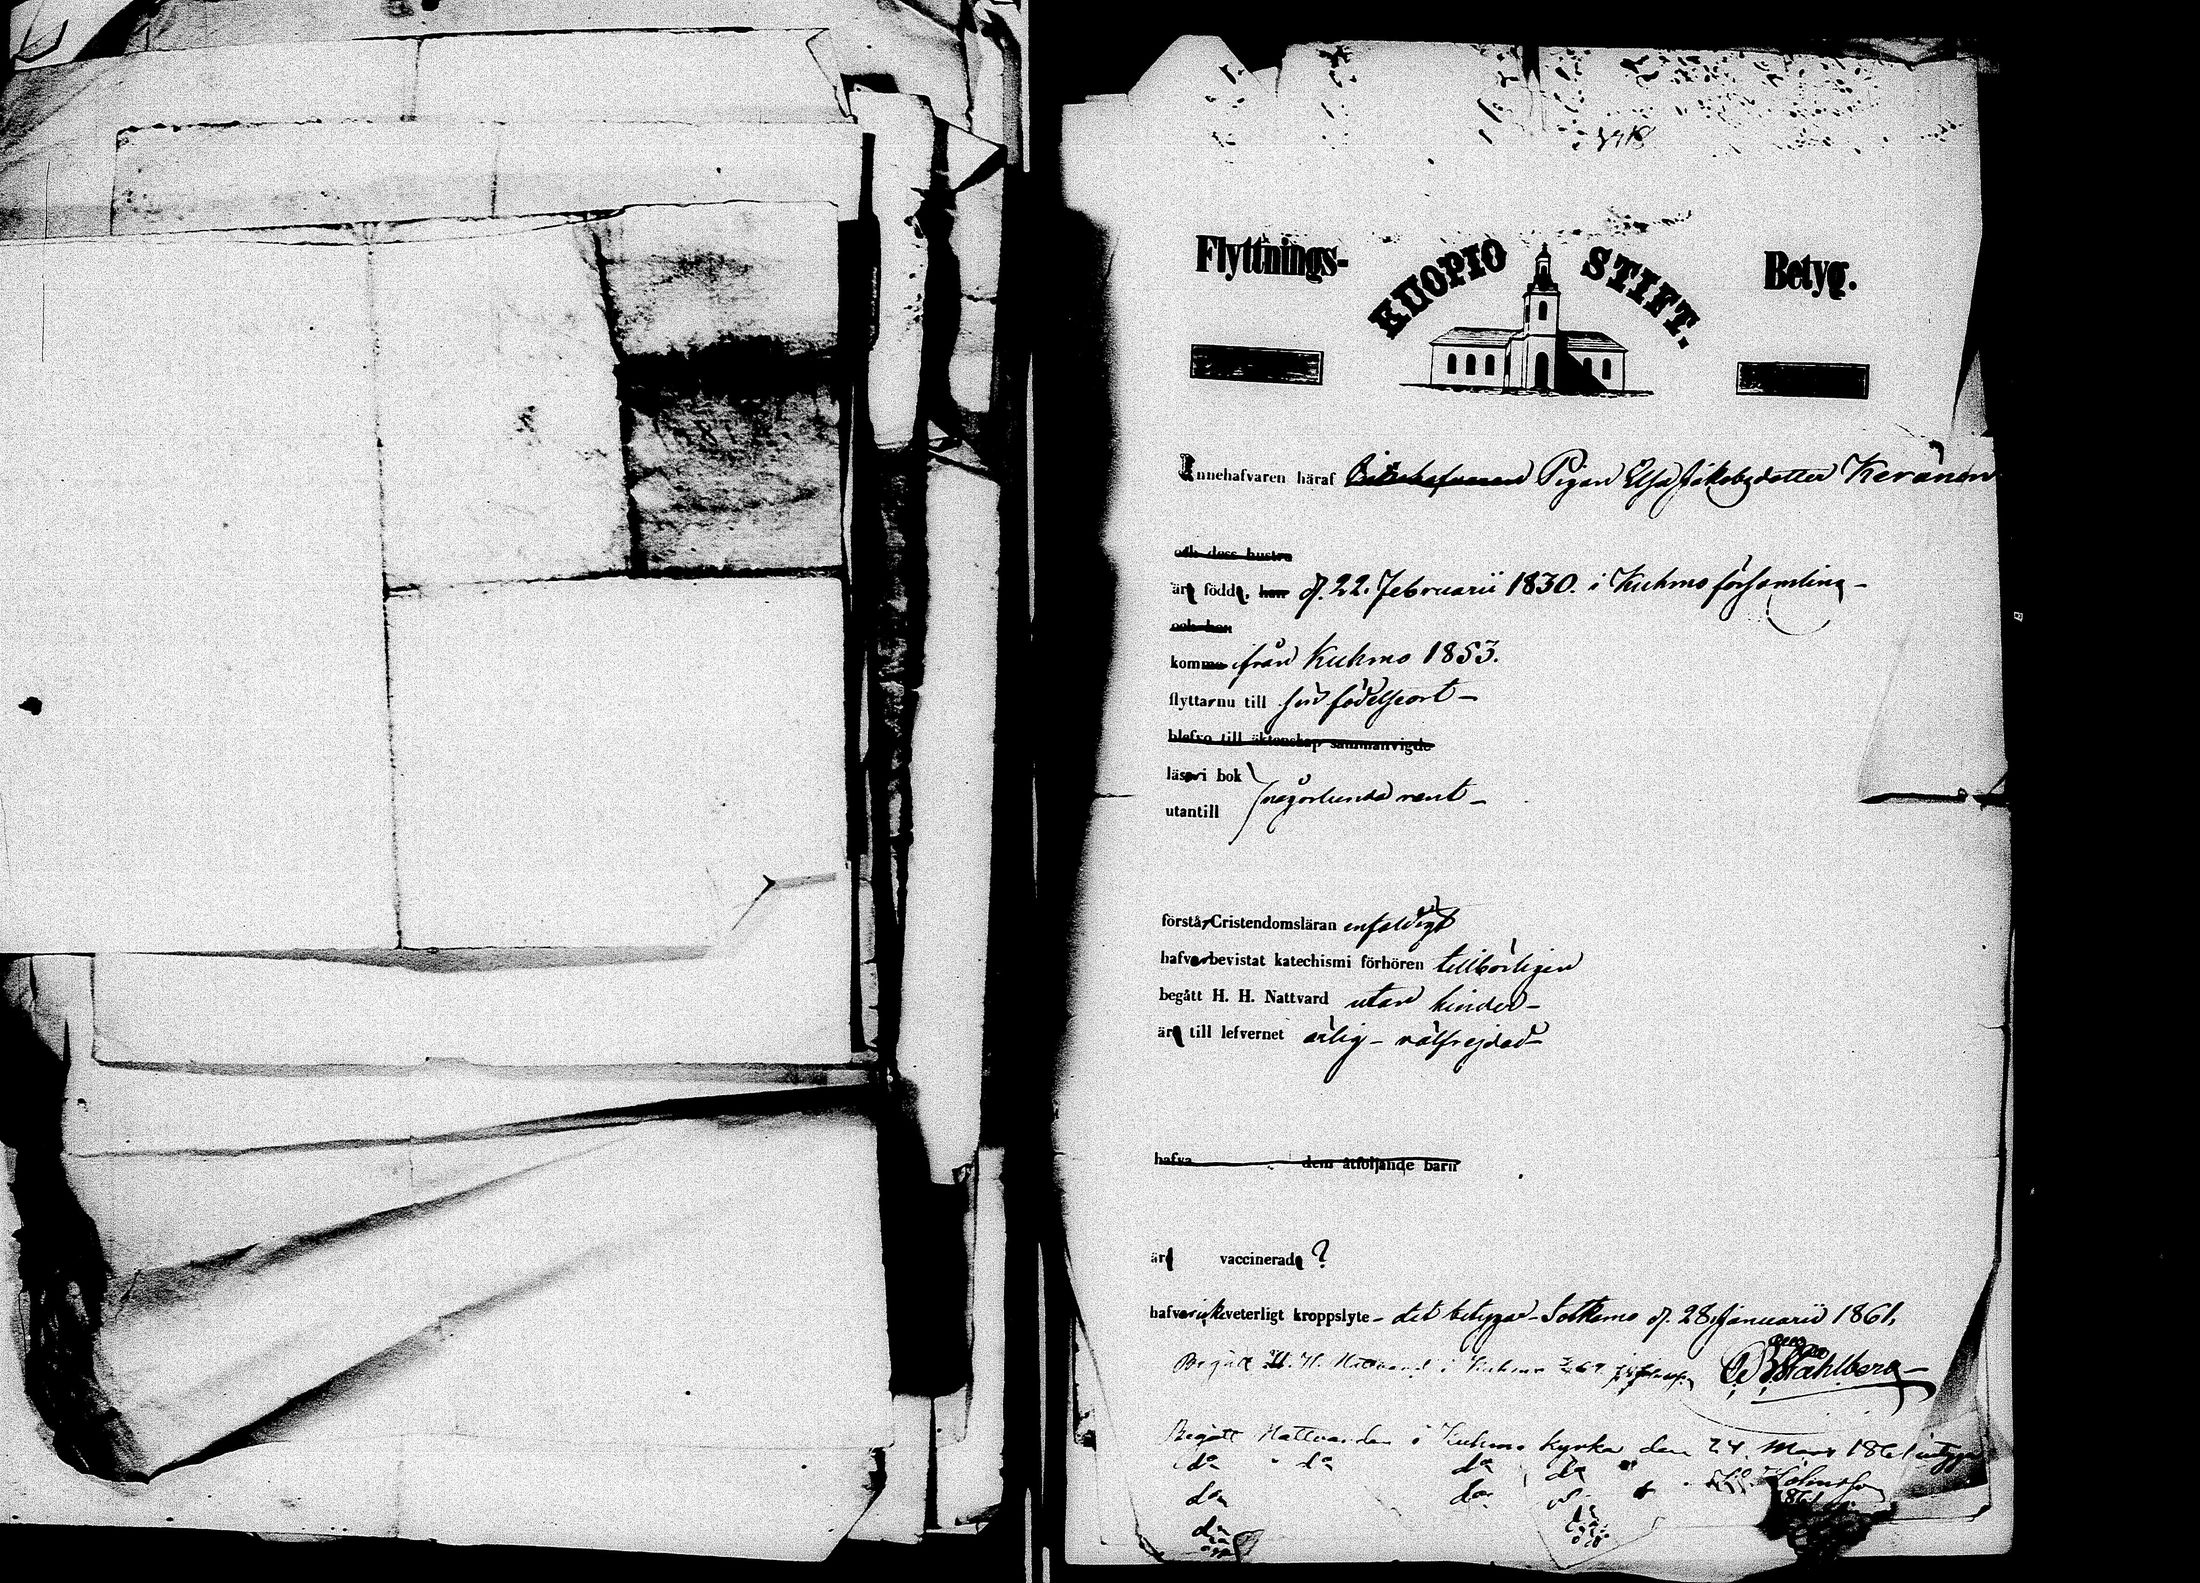 Flyttnings- KUOPIO STIFT. Betyg.
Innehafvaren häraf Pigan Elsa Jakobsdotter Keränen
och dess hustru
äro födde, han d. 22. Februarii 1830. i Kuhmo församling –
och hon
komne ifrån Kuhmo 1853.
flyttar nu till sin födelseort –
blefvo till äktenskap sammanvigde
läser i bok
någorlunda rent –
utantill
förstår Cristendomsläran enfaldigt
hafver bevistat katechismi förhören tillbörligen
begått H. H. Nattvard utan hinder –
är till lefvernet ärlig – välfrejdad –
hafva dem åtföljande barn
är vaccinerad ?
hafver icke veterligt kroppslyte – det betygar – Sotkamo d. 28 Januarii 1861.
Begått H. H. Nattvard i Kuhmo
Stahlberg
Begått Nattvarden i Kuhmo kyrka den 24 Mars 1861 intygar
do do do do
do do
do